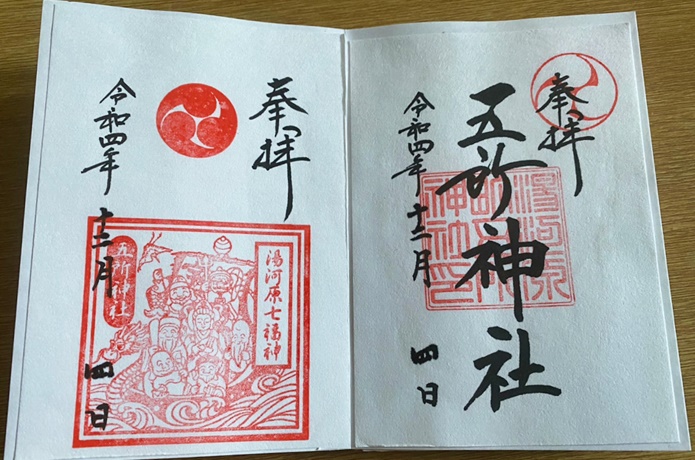 奉拝
五所神社
湯河原五所神社印
令和四年十二月四日
奉拝
湯河原七福神
五所神社
令和四年十二月四日